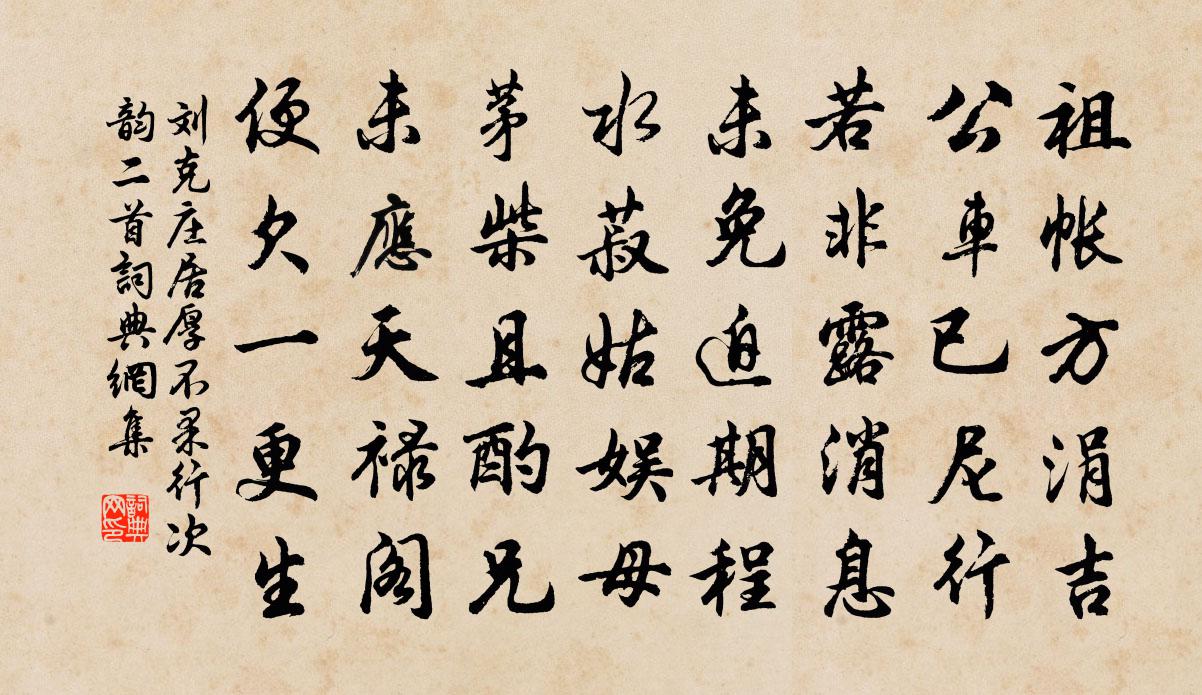 祖帐方涓吉
公車已尼行
若非露消息
未免迫期程
水菽姑娱母
茅柴且酌兄
未應天禄阁
便欠一更生
刘克庄居厚不果行次
韵二首詞典網集
詞典
网印